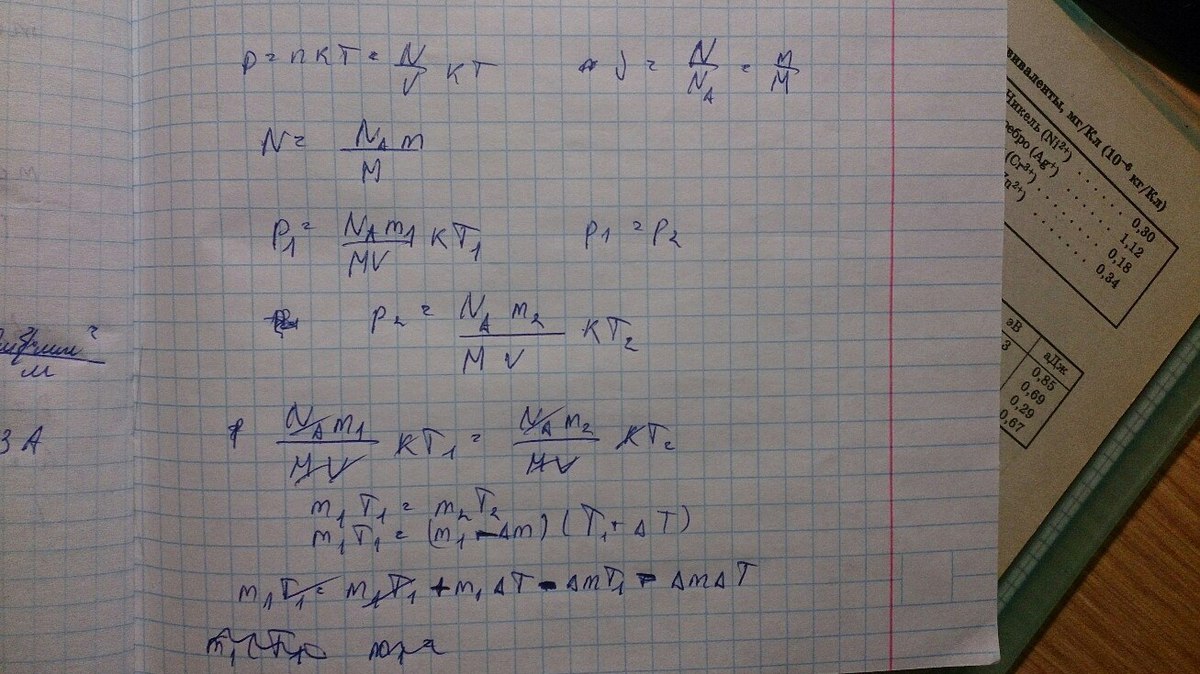 p = nкT = N/V кT ν = N/N_A = m/M
N = N_A m / M
P₁ = N_A m₁ / MV кT₁ p₁ = p₂
p₂ = N_A m₂ / M V кT₂
N_A m₁ / MV кT₁ = N_A m₂ / MV кT₂
m₁T₁ = m₂T₂
m₁T₁ = (m₁ - Δm)(T₁ + ΔT)
m₁T₁ = m₁T₁ + m₁ΔT - ΔmT₁ - ΔmΔT
м
3 А
виваленты, мг/Кл (10⁻⁶ кг/Кл)
Никель (Ni²⁺) . . . . . . 0,30
ебро (Ag⁺) . . . . . . 1,12
(Cr³⁺) . . . . . . 0,18
n²⁺) . . . . . . 0,34
эВ аДж
3 0,85
0,69
0,29
0,67